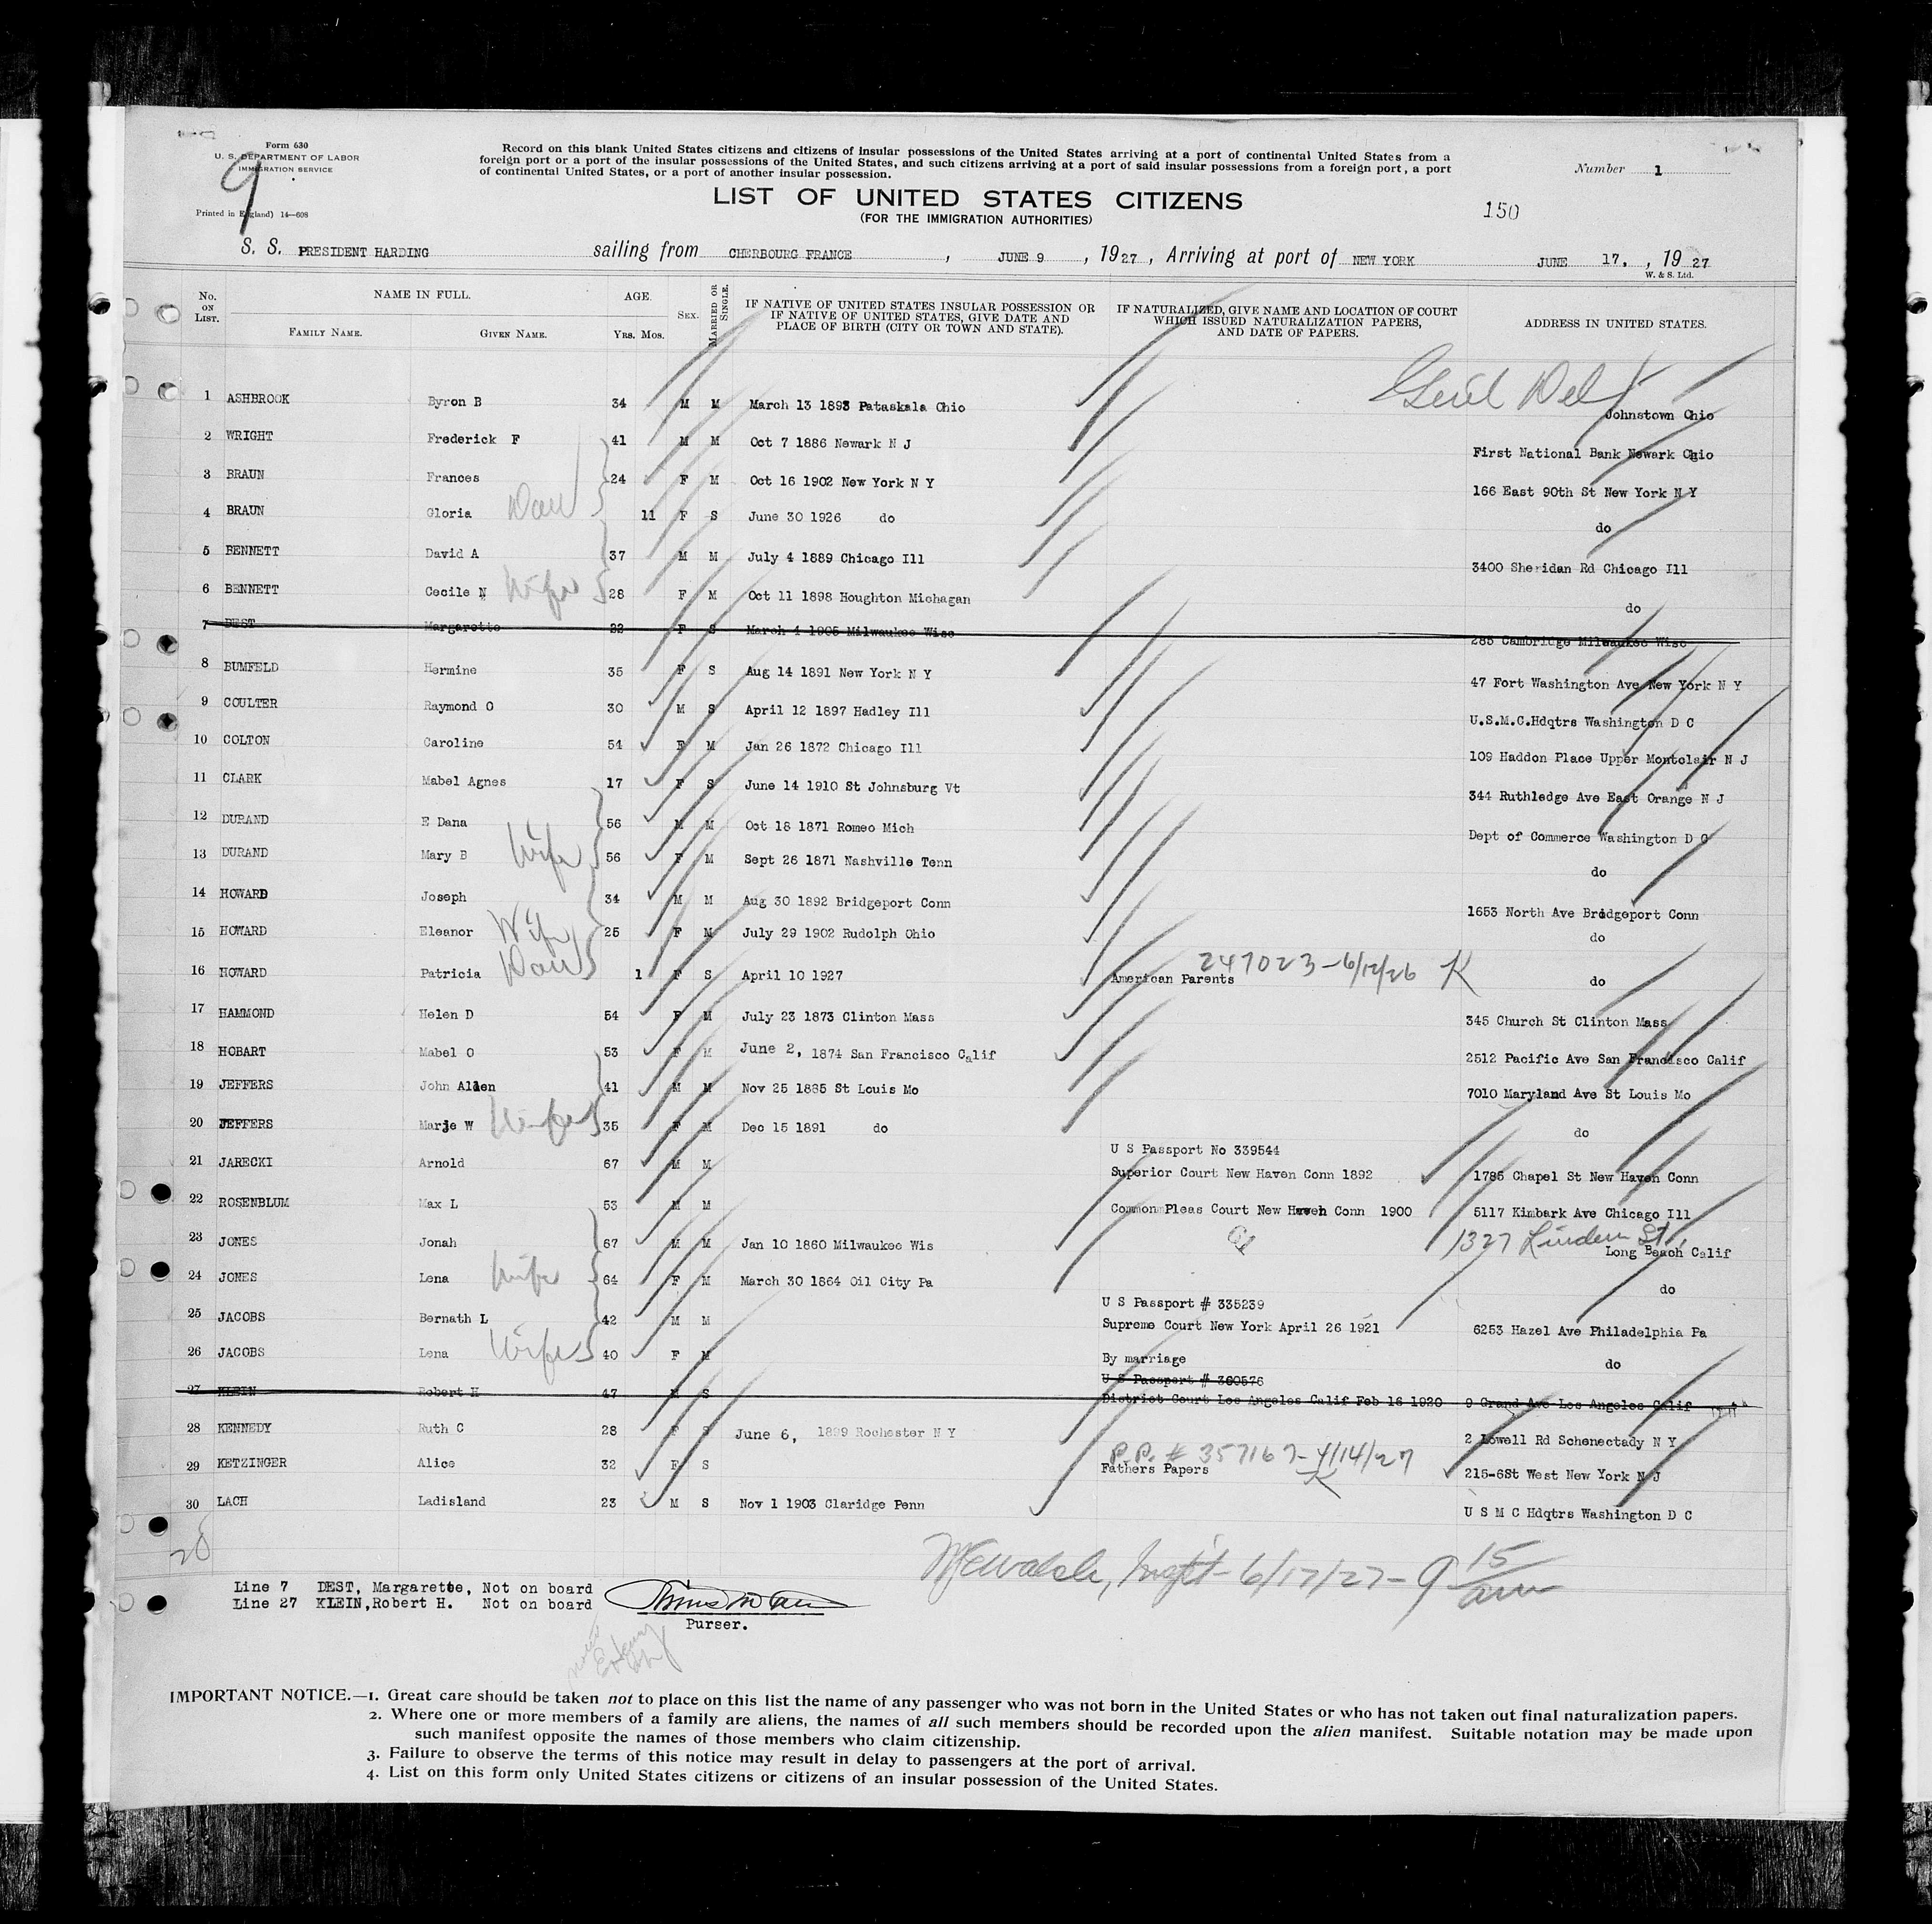 Form 630
U. S. DEPARTMENT OF LABOR
IMMIGRATION SERVICE
9
Printed in England) 14—608
Record on this blank United States citizens and citizens of insular possessions of the United States arriving at a port of continental United States from a
foreign port or a port of the insular possessions of the United States, and such citizens arriving at a port of said insular possessions from a foreign port, a port
of continental United States, or a port of another insular possession.
Number 1
LIST OF UNITED STATES CITIZENS
(FOR THE IMMIGRATION AUTHORITIES)
150
S. S. PRESIDENT HARDING sailing from CHERBOURG FRANCE , JUNE 9 , 1927 , Arriving at port of NEW YORK JUNE 17. , 1927
W. & S. Ltd.
No. ON LIST. NAME IN FULL. FAMILY NAME. GIVEN NAME. AGE. Yrs. Mos. SEX. MARRIED OR SINGLE. IF NATIVE OF UNITED STATES INSULAR POSSESSION OR IF NATIVE OF UNITED STATES, GIVE DATE AND PLACE OF BIRTH (CITY OR TOWN AND STATE). IF NATURALIZED, GIVE NAME AND LOCATION OF COURT WHICH ISSUED NATURALIZATION PAPERS, AND DATE OF PAPERS. ADDRESS IN UNITED STATES.
1 ASHBROOK Byron B 34 M M March 13 1893 Pataskala Ohio Genl Del Johnstown Ohio
2 WRIGHT Frederick F 41 M M Oct 7 1886 Newark N J First National Bank Newark Ohio
3 BRAUN Frances 24 F M Oct 16 1902 New York N Y 166 East 90th St New York N Y
4 BRAUN Gloria Dau 11 F S June 30 1926 do do
5 BENNETT David A 37 M M July 4 1889 Chicago Ill 3400 Sheridan Rd Chicago Ill
6 BENNETT Cecile N Wife 28 F M Oct 11 1898 Houghton Michagan do
7 DEST Margarette 22 F S March 4 1905 Milwaukee Wisc 285 Cambridge Milwaukee Wisc
8 BUMFELD Hermine 35 F S Aug 14 1891 New York N Y 47 Fort Washington Ave New York N Y
9 COULTER Raymond O 30 M S April 12 1897 Hadley Ill U.S.M.C.Hdqtrs Washington D C
10 COLTON Caroline 54 F M Jan 26 1872 Chicago Ill 109 Haddon Place Upper Montclair N J
11 CLARK Mabel Agnes 17 F S June 14 1910 St Johnsburg Vt 344 Ruthledge Ave East Orange N J
12 DURAND E Dana 56 M M Oct 18 1871 Romeo Mich Dept of Commerce Washington D C
13 DURAND Mary B Wife 56 F M Sept 26 1871 Nashville Tenn do
14 HOWARD Joseph 34 M M Aug 30 1892 Bridgeport Conn 1653 North Ave Bridgeport Conn
15 HOWARD Eleanor Wife 25 F M July 29 1902 Rudolph Ohio do
16 HOWARD Patricia Dau 1 F S April 10 1927 247023-6/12/26 K American Parents do
17 HAMMOND Helen D 54 F M July 23 1873 Clinton Mass 345 Church St Clinton Mass
18 HOBART Mabel O 53 F M June 2, 1874 San Francisco Calif 2512 Pacific Ave San Francisco Calif
19 JEFFERS John Allen 41 M M Nov 25 1885 St Louis Mo 7010 Maryland Ave St Louis Mo
20 JEFFERS Marje W Wife 35 F M Dec 15 1891 do do
U S Passport No 339544
21 JARECKI Arnold 67 M M Superior Court New Haven Conn 1892 1785 Chapel St New Haven Conn
22 ROSENBLUM Max L 53 M M Common Pleas Court New Haven Conn 1900 5117 Kimbark Ave Chicago Ill
23 JONES Jonah 67 M M Jan 10 1860 Milwaukee Wis 1327 Linden St, Long Beach Calif
24 JONES Lena Wife 64 F M March 30 1864 Oil City Pa do
U S Passport # 335239
25 JACOBS Bernath L 42 M M Supreme Court New York April 26 1921 6253 Hazel Ave Philadelphia Pa
26 JACOBS Lena Wife 40 F M By marriage do
U S Passport # 360576
27 KLEIN Robert H 47 M S District Court Los Angeles Calif Feb 16 1920 9 Grand Ave Los Angeles Calif
28 KENNEDY Ruth C 28 F S June 6, 1899 Rochester N Y 2 Lowell Rd Schenectady N Y
29 KETZINGER Alice 32 F S P.P. # 357167-4/14/27 K Fathers Papers 215-6St West New York N J
30 LACH Ladisland 23 M S Nov 1 1903 Claridge Penn U S M C Hdqtrs Washington D C
28
6/17/27-9 15/am
Line 7 DEST, Margarette, Not on board
Line 27 KLEIN,Robert H. Not on board
Purser.
IMPORTANT NOTICE.—1. Great care should be taken not to place on this list the name of any passenger who was not born in the United States or who has not taken out final naturalization papers.
2. Where one or more members of a family are aliens, the names of all such members should be recorded upon the alien manifest. Suitable notation may be made upon
such manifest opposite the names of those members who claim citizenship.
3. Failure to observe the terms of this notice may result in delay to passengers at the port of arrival.
4. List on this form only United States citizens or citizens of an insular possession of the United States.